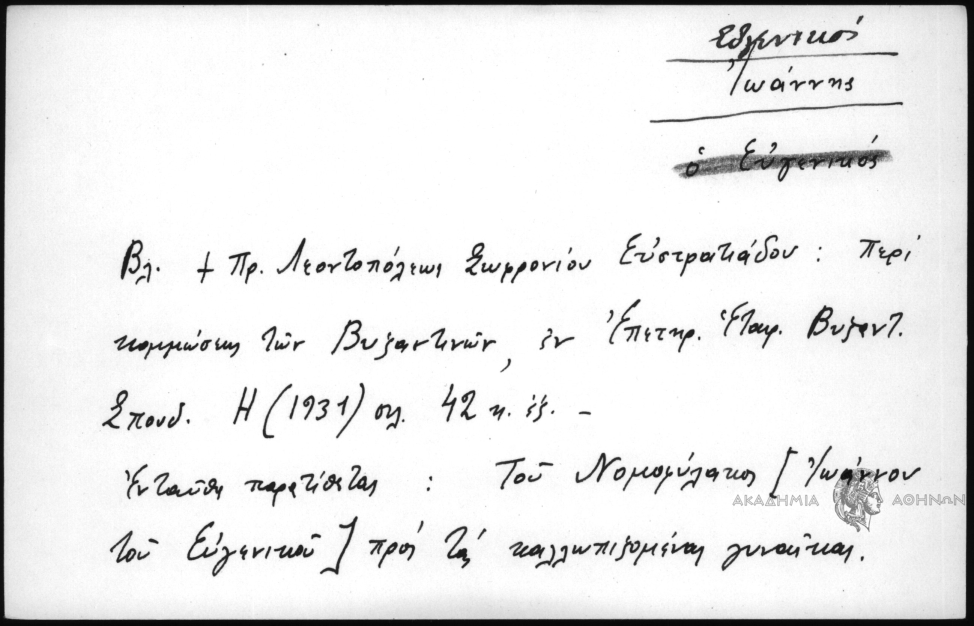 Εὐγενικός
Ἰωάννης
ὁ Εὐγενικός
Βλ. + Πρ. Λεοντοπόλεως Σωφρονίου Εὐστρατιάδου : Περὶ
κομμώσεως τῶν Βυζαντινῶν, ἐν Ἐπετηρ. Ἑταιρ. Βυζαντ.
Σπουδ. Η (1931) σελ. 42 κ. ἑξ. –
Ἐνταῦθα παρατίθεται : Τοῦ Νομοφύλακος [Ἰωάννου
τοῦ Εὐγενικοῦ] πρὸς τὰς καλλωπιζομένας γυναῖκας.
ΑΚΑΔΗΜΙΑ ΑΘΗΝΩΝ